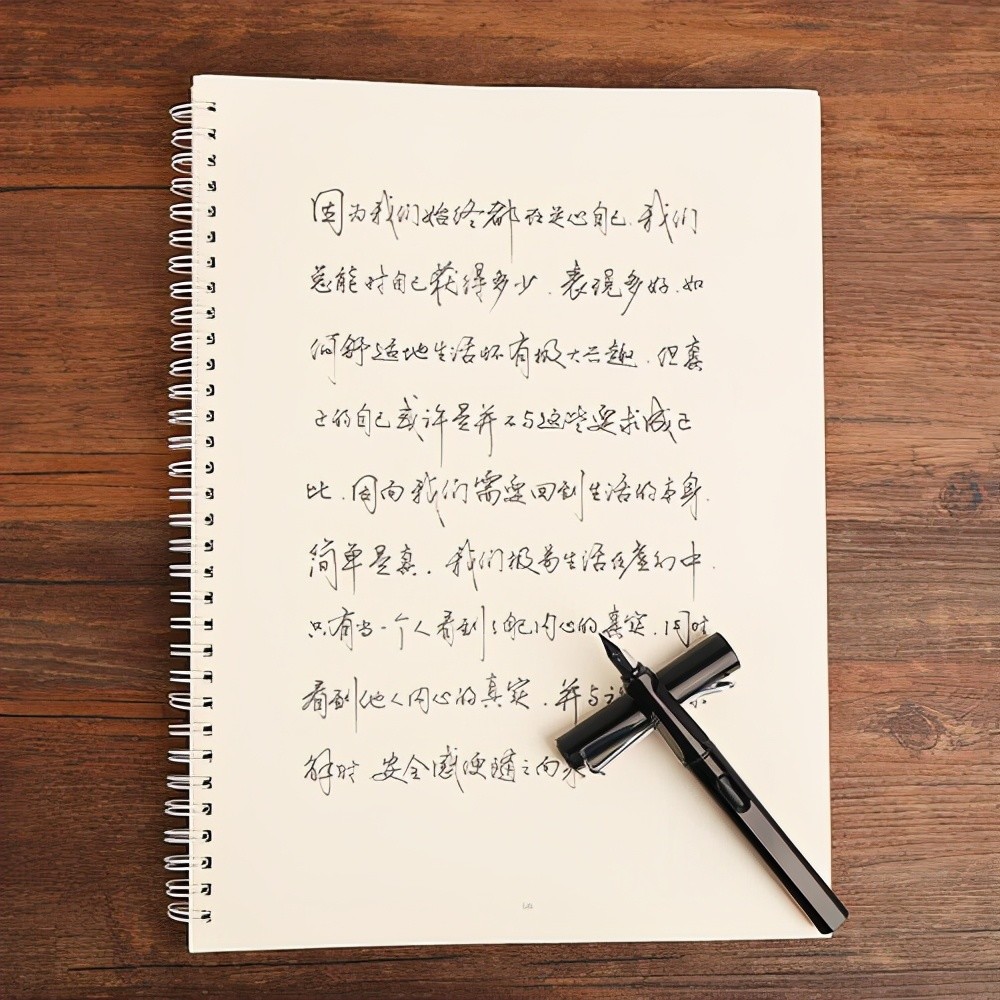 因为我们始终都在关心自己.我们
总能对自己获得多少.表现多好.如
何舒适地生活怀有极大兴趣.但真
正的自己或许是并不与这些要求成正
比.因而我们需要回到生活的本身.
简单是真.我们极易生活在虚幻中.
只有当一个人看到自己内心的真实.同时
看到他人内心的真实.并与之
解时 安全感便随之而来